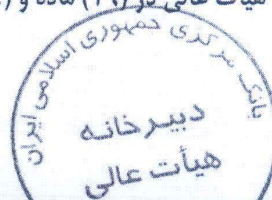 هیأت عالی در (۱۹) ماده و (
بانک مرکزی جمهوری اسلامی ایران
دبیرخانه
هیأت عالی